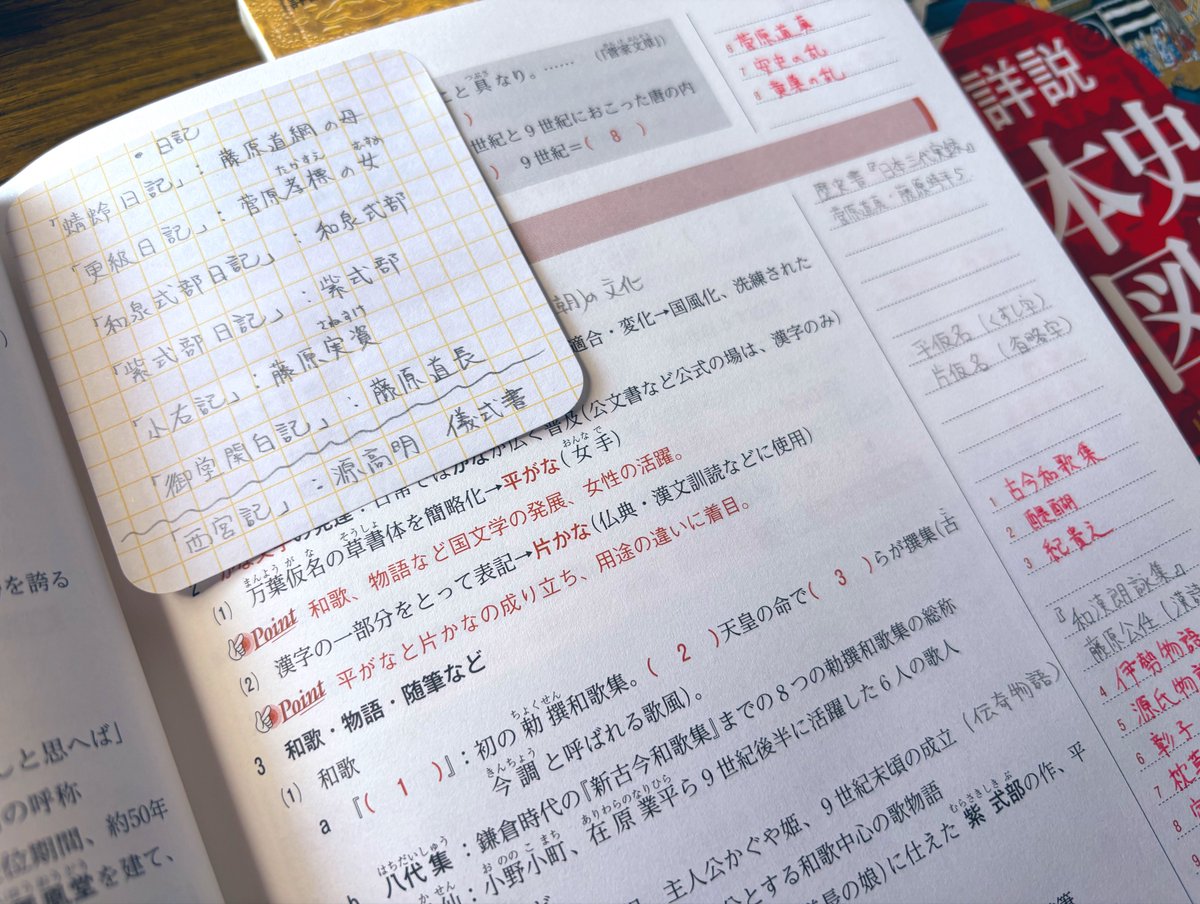 ・日記
「蜻蛉日記」：藤原道綱の母
たかすえ
「更級日記」：菅原孝標の女
「和泉式部日記」：和泉式部
「紫式部日記」：紫式部
さねすけ
「小右記」：藤原実資
「御堂関白記」：藤原道長
西宮記」：源高明 儀式書
こと具なり。……
世紀と9世紀におこった唐の内
) 9世紀=( 8 )
朝)の文化
適合・変化→国風化、洗練された
(公文書など公式の場は、漢字のみ)
(1) 万葉仮名の草書体を簡略化→平がな(女手)
Point 和歌、物語など国文学の発展、女性の活躍。
(2) 漢字の一部分をとって表記→片かな(仏典・漢文訓読などに使用)
Point 平がなと片かなの成り立ち、用途の違いに着目。
3 和歌・物語・随筆など
(1) 和歌
a 『( 1 )』：初の勅撰和歌集。( 2 )天皇の命で( 3 )らが撰集(古
今調と呼ばれる歌風)。
八代集：鎌倉時代の『新古今和歌集』までの8つの勅撰和歌集の総称
仙：小野小町、在原業平ら9世紀後半に活躍した6人の歌人
主人公かぐや姫、9世紀末頃の成立(伝奇物語)
とする和歌中心の歌物語
長の娘)に仕えた紫式部の作、平
6 菅原道真
7 安史の乱
8 黄巣の乱
歴史書『日本三代実録』
菅原道真・藤原時平ら
平仮名(くずし字)
片仮名(省略字)
1 古今和歌集
2 醍醐
3 紀貫之
『和漢朗詠集』
藤原公任(漢
4 伊勢物語
5 源氏物
6 彰子
7 枕草
8
9
を誇る
しと思へば」
の呼称
位期間、約50年
凰堂を建て、
詳説
本史
図